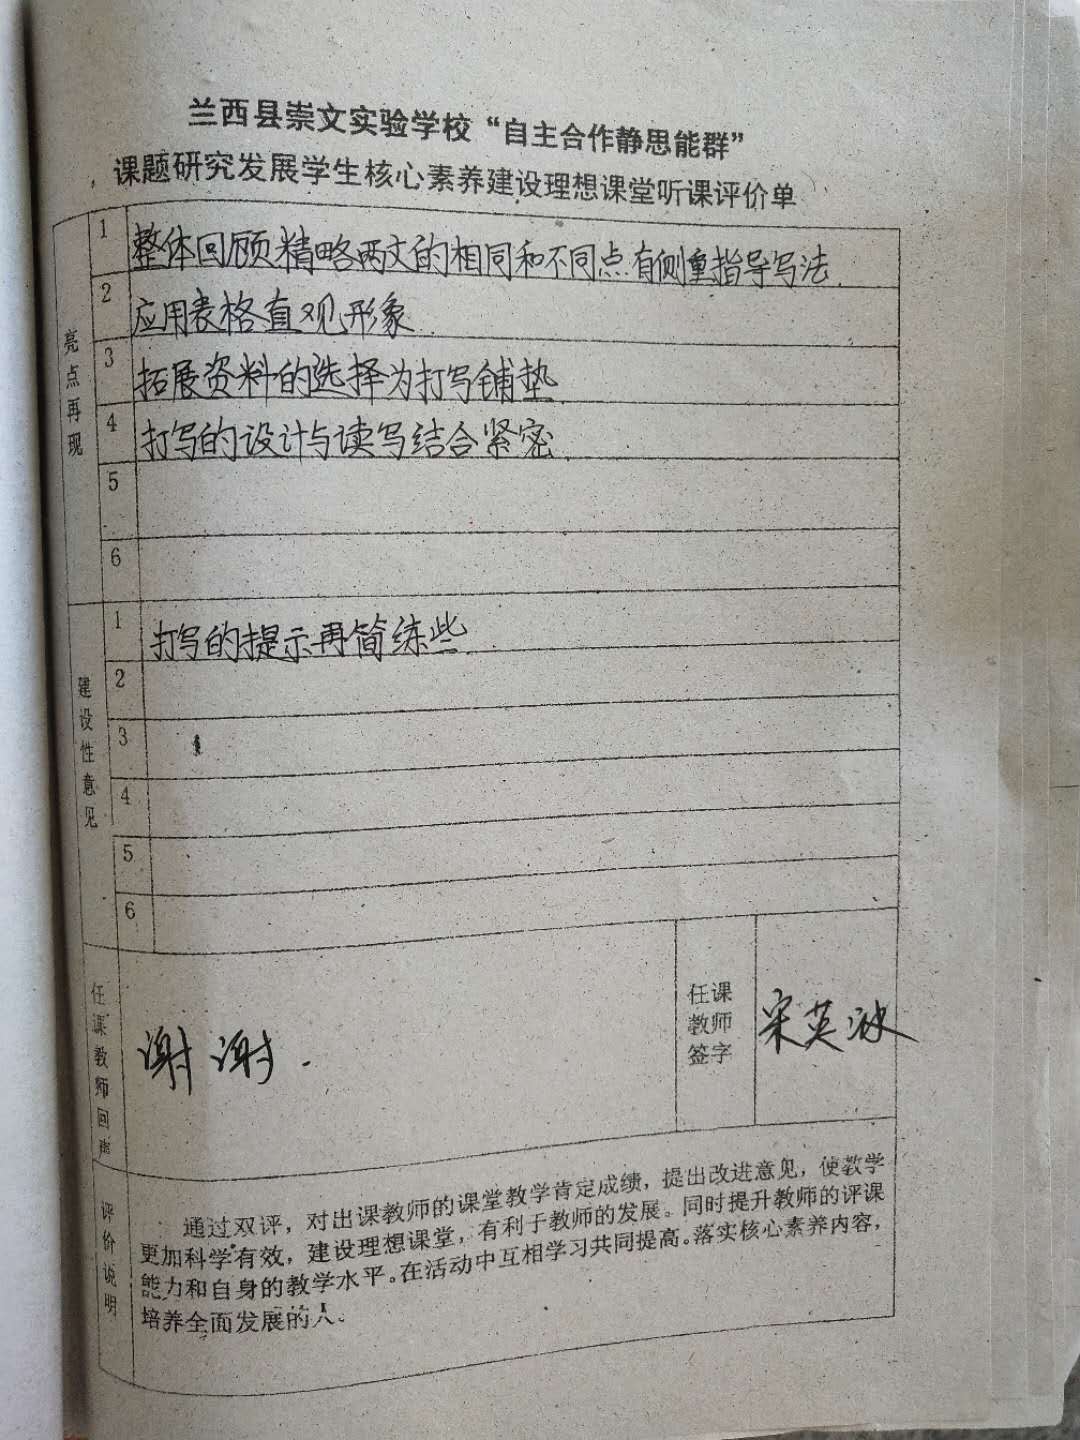 兰西县崇文实验学校“自主合作静思能群”
课题研究发展学生核心素养建设理想课堂听课评价单
亮点再现
1 整体回顾精略两文的相同和不同点有侧重指导写法.
2 应用表格直观形象.
3 拓展资料的选择为打写铺垫.
4 打写的设计与读写结合紧密.
5
6
建设性意见
1 打写的提示再简练些.
2
3
4
5
6
任课教师回声
谢谢.
任课
教师
签字
宋英冰
评价说明
通过双评，对出课教师的课堂教学肯定成绩，提出改进意见，使教学
更加科学有效，建设理想课堂，有利于教师的发展。同时提升教师的评课
能力和自身的教学水平。在活动中互相学习共同提高。落实核心素养内容，
培养全面发展的人。